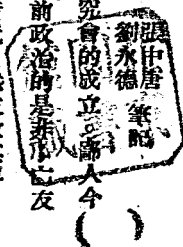 張中唐
劉永德 筆記
究會的成立。鄙人今
前政治的是非